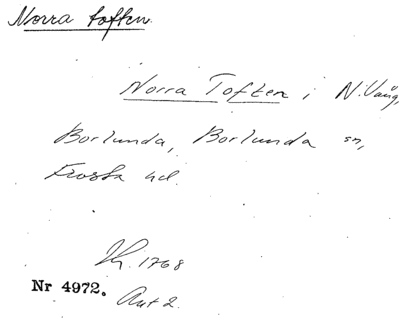 Norra toften.
Norra Toften i N. Vång,
Borlunda, Borlunda sn,
Frosta hd.
1768
Nr 4972.
Akt 2.